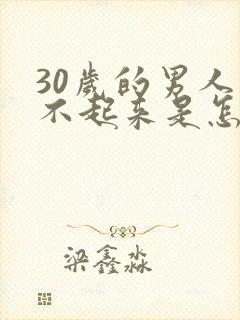 30歲的男人
不起来是怎
梁鑫淼